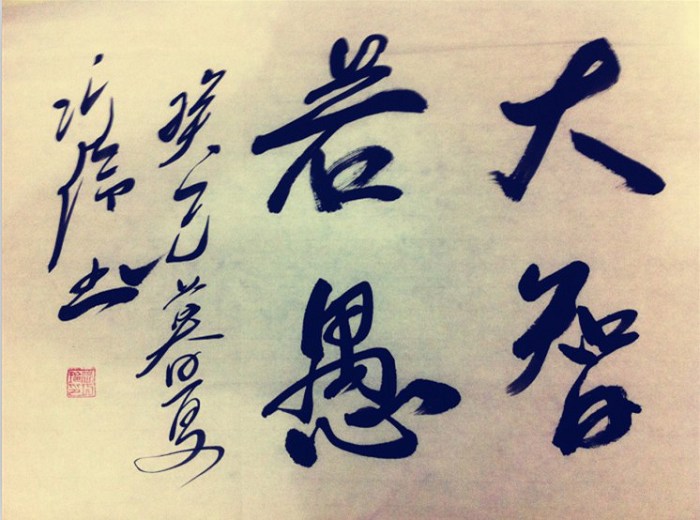 大智
若愚
癸巳暮夏
书